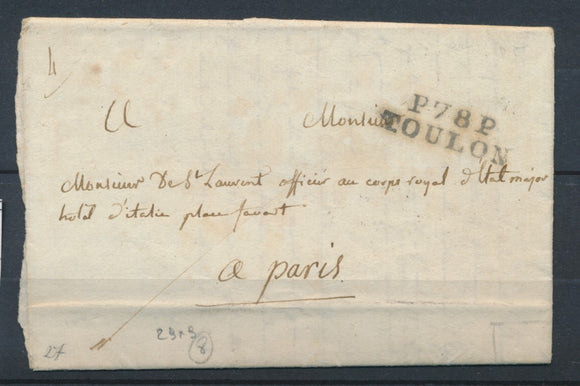 P78P
TOULON
Monsieur
Monsieur De St Laurent officier au corps royal d'Etat major
hotel d'italie place favart
a paris
27
8